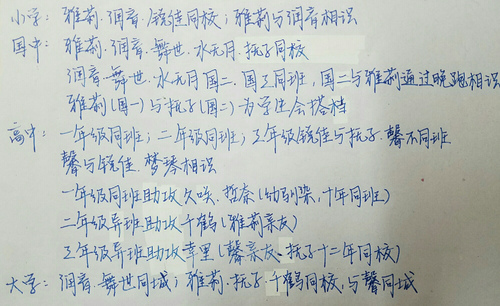 小学：雅莉·润音·锐佳同校；雅莉与润音相识
国中：雅莉·润音·舞世·水无月·抚子同校
润音·舞世·水无月国二、国三同班，国二与雅莉通过晚跑相识
雅莉(国一)与抚子(国二)为学生会搭档
高中：一年级同班；二年级同班；三年级锐佳与抚子·馨不同班
馨与锐佳·梦琴相识
一年级同班助攻久咲·哲奈(幼驯染，十年同班)
二年级异班助攻千鹤(雅莉亲友)
三年级异班助攻幸里(馨亲友·抚子十二年同校)
大学：润音·舞世同城；雅莉·抚子·千鹤同校，与馨同城